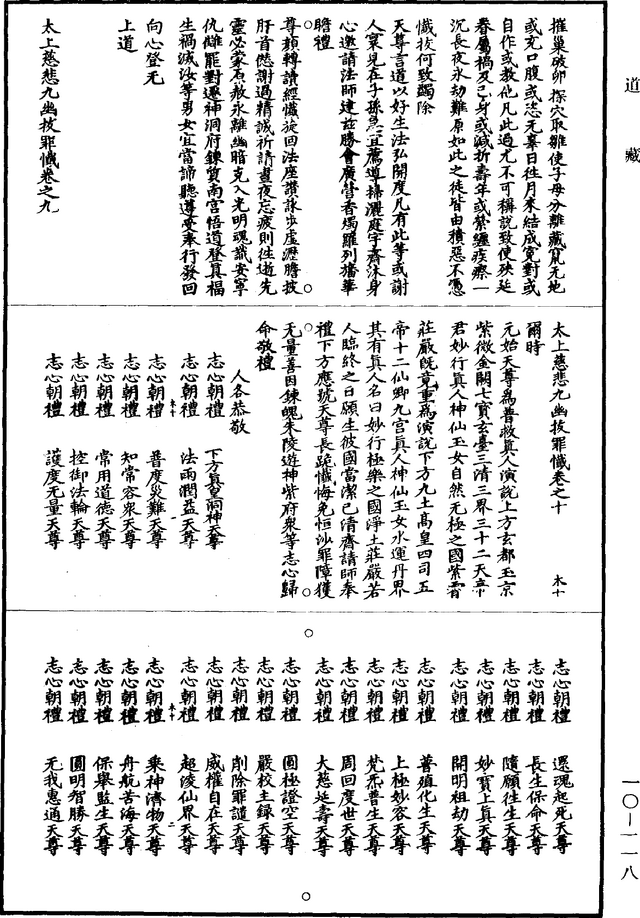 道藏
摧巢破卵探穴取雛使子母分離藏竄无地
或充口腹或恣无辜日往月來結成寃對或
自作或教他凡此過尤不可稱說致使殃延
眷屬禍及己身或減折壽年或縈纏疾瘵一
沉長夜永劫難原如此之徒皆由積惡不憑
懺拔何致蠲除
天尊言道以好生法弘開度凡有此等或謝
人寰見在子孫急宜薦導掃灑庭宇齊沐身
心邀請法師建兹勝會廣營香燭羅列旛華
瞻禮
尊顏轉讀經懺旋回法座讚詠步虛瀝膽披
肝首愆謝過精誠祈請晝夜忘疲則往逝先
靈必蒙原赦永離幽暗克入光明魂識安寧
仇讎罷對遷神洞府鍊質南宫悟道登真福
生禍滅汝等男女宜當諦聽遵受奉行發回
向心登无
上道
太上慈悲九幽拔罪懺卷之九
太上慈悲九幽拔罪懺卷之十 木十
爾時
元始天尊為普救真人演說上方玄都玉京
紫微金闕七寳玄臺三清三界三十二天帝
君妙行真人神仙玉女自然无極之國紫霄
莊嚴既竟重為演說下方九土髙皇四司五
帝十二仙卿九宫真人神仙玉女水運丹界
其有真人名曰妙行極樂之國淨土莊嚴若
人臨終之日願生彼國當潔已清齋請師奉
禮下方應號天尊長跪懺悔免恒沙罪障獲
无量善因鍊魄朱陵遊神紫府衆等志心歸
命敬禮
人各恭敬
志心朝禮 下方真皇洞神天尊
志心朝禮 法雨潤益天尊
志心朝禮 普度災難天尊
志心朝禮 知常容衆天尊
志心朝禮 常用道德天尊
志心朝禮 控御法輪天尊
志心朝禮 護度无量天尊
志心朝禮 還魂起死天尊
志心朝禮 長生保命天尊
志心朝禮 隨願往生天尊
志心朝禮 妙寳上真天尊
志心朝禮 開明祖劫天尊
志心朝禮 普殖化生天尊
志心朝禮 上極妙容天尊
志心朝禮 梵炁普生天尊
志心朝禮 周回度世天尊
志心朝禮 大慈延壽天尊
志心朝禮 圓極證空天尊
志心朝禮 嚴校主録天尊
志心朝禮 削除罪譴天尊
志心朝禮 威權自在天尊
志心朝禮 超淩仙界天尊
志心朝禮 乘神濟物天尊
志心朝禮 舟航苦海天尊
志心朝禮 保舉監生天尊
志心朝禮 圓明智勝天尊
志心朝禮 无我惠通天尊
一〇—一一八